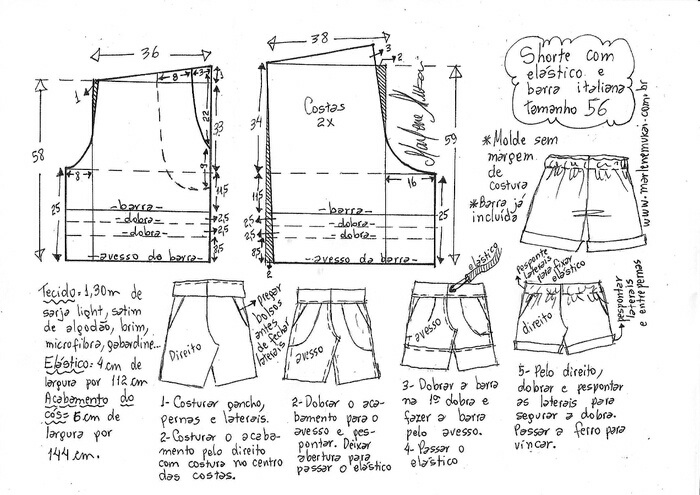 36
8
3
1
1
22
33
58
5
8
11,5
25
-barra-
-dobra-
-dobra-
2,5
2,5
3,5
-avesso da barra-
38
3
2
Costas
2x
Marlene Mukai
34
59
16
11,5
25
-barra-
-dobra-
-dobra-
2,5
2,5
3,5
-avesso da barra-
25
2
Shorte com
elástico e
barra italiana
tamanho 56
*Molde sem
margem
de
costura
*Barra já
incluída
www.marlenemukai.com.br
Tecido=1,90m de
sarja light, satim
de algodão, brim,
microfibra, gabardine...
Elástico=4cm de
largura por 112cm
Acabamento do
cós=6cm de
largura por
144cm.
Direito
Pregar
bolsos
antes
de fechar
laterais
1- Costurar gancho,
pernas e laterais.
2- Costurar o acaba-
mento pelo direito
com costura no centro
das costas.
avesso
2- Dobrar o aca-
bamento para o
avesso e pes-
pontar. Deixar
abertura para
passar o elástico
elástico
avesso
3- Dobrar a barra
na 1ª dobra e
fazer a barra
pelo avesso.
4- Passar o
elástico
Pesponte
laterais
para fixar
elástico
direito
pespontar
laterais
e entrepernas
5- Pelo direito,
dobrar e pespontar
as laterais para
segurar a dobra.
Passar a ferro para
vincar.